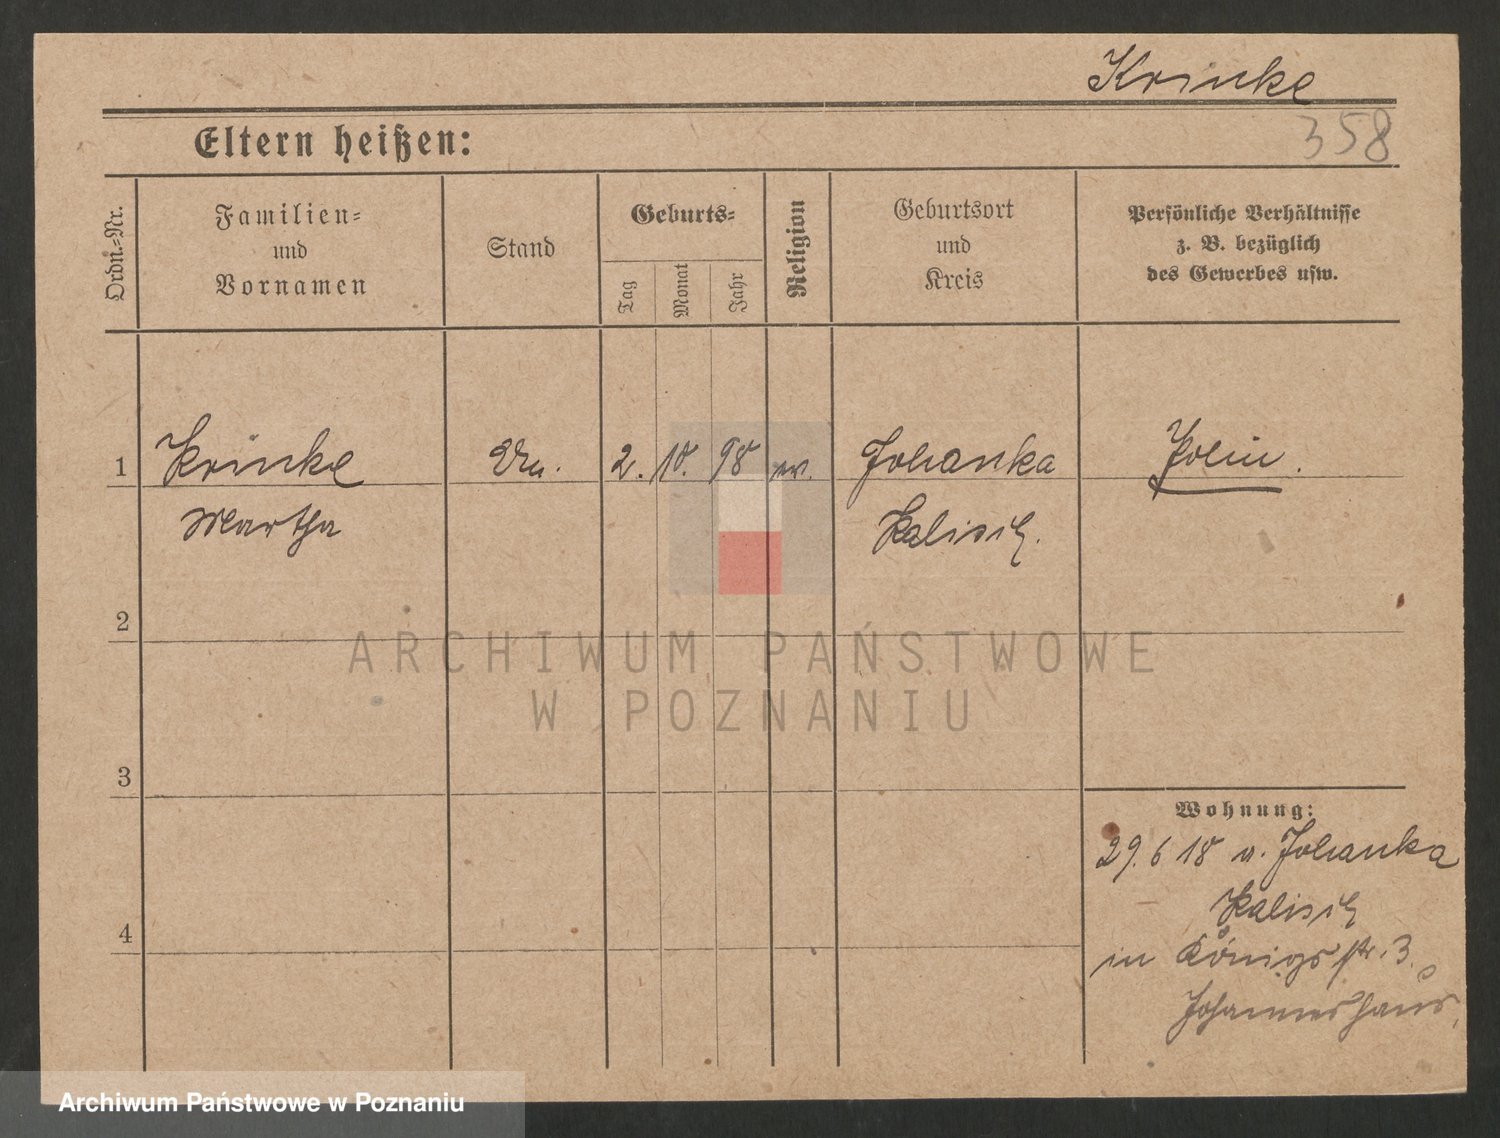 Krinke
358
Eltern heißen:
Ordn.-Nr.
Familien-
und
Vornamen
Stand
Geburts-
Tag
Monat
Jahr
Religion
Geburtsort
und
Kreis
Persönliche Verhältnisse
z. B. bezüglich
des Gewerbes usw.
1 Krinke 2. 10. 98 ev. Johanka Polin.
Martha Kalisch.
2
3
4
Wohnung:
29. 6 18 v. Johanka
Kalisch
in Königsstr. 3.
Johanneshaus.
ARCHIWUM PAŃSTWOWE
W POZNANIU
Archiwum Państwowe w Poznaniu